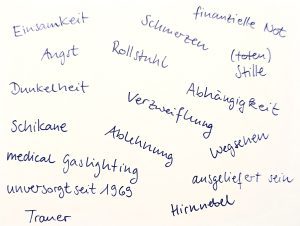 finanzielle Not
Einsamkeit
Schmerzen
Angst
Rollstuhl
(toten)
Stille
Dunkelheit
Abhängigkeit
Verzweiflung
Schikane
Ablehnung
Wegsehen
medical Gaslighting
ausgeliefert sein
unversorgt seit 1969
Hirnnebel
Trauer